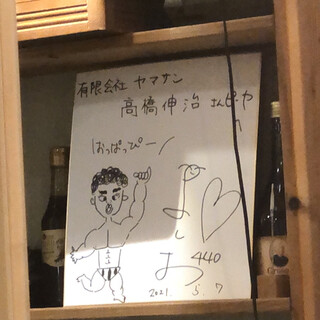 有限会社 ヤマサン
高橋伸治 さんピーヤ
はっぱっぴー!
よしお
440
2021. 5. 7